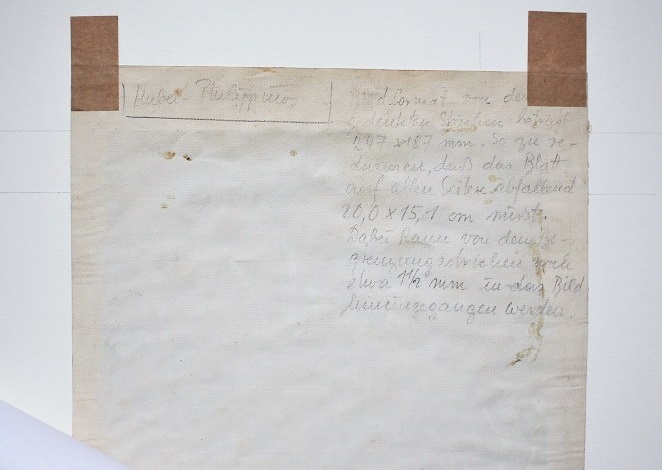 Philippinos
Bildformat von den
gedeckten Strichen beträgt
247 x 187 mm. So zu re-
duzieren, daß das Blatt
auf allen Seiten abfallend
20,0 x 15,1 cm misst.
Dabei kann von den Be-
grenzungsstrichen noch
etwa 1 1/2 mm in das Bild
hineinzegangen werden.